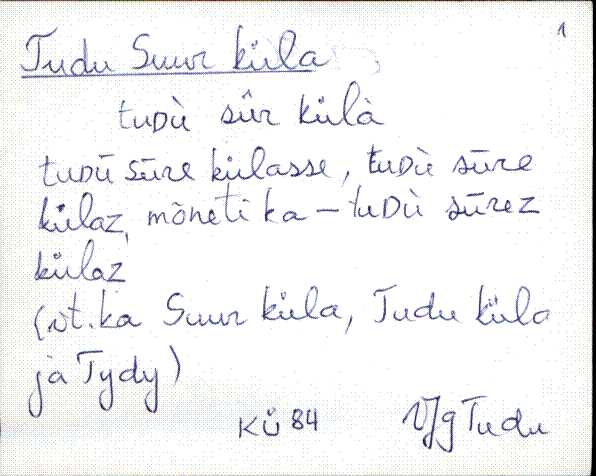 1
Tudu Suur küla
tuDù sûr külà
tuDū sūre külasse, tuDù sūre
külaz, mōneti ka – tuDù sūrez
külaz
(vt. ka Suur küla, Tudu küla
ja Tydy)
KÜ 84 VJg Tudu